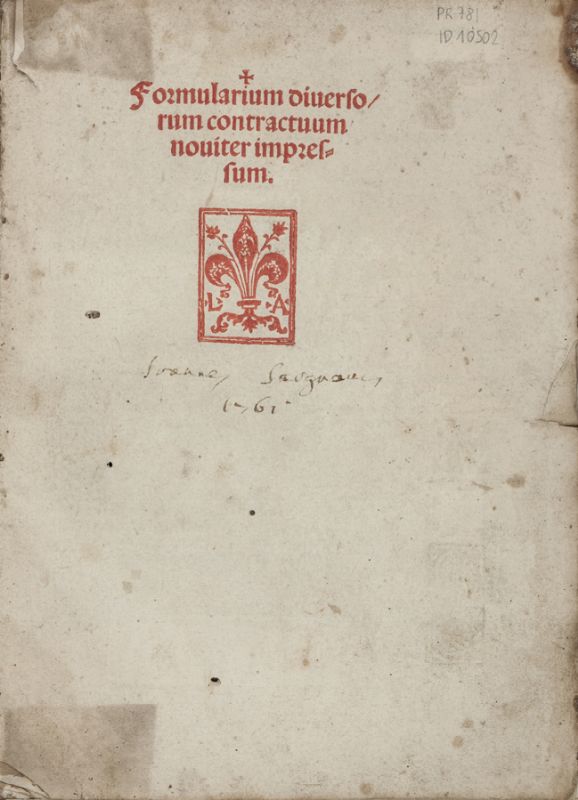 PR.781
ID 10502
✠
Formularium diuerso/
rum contractuum
nouiter impres-
sum.
L A
Joannes